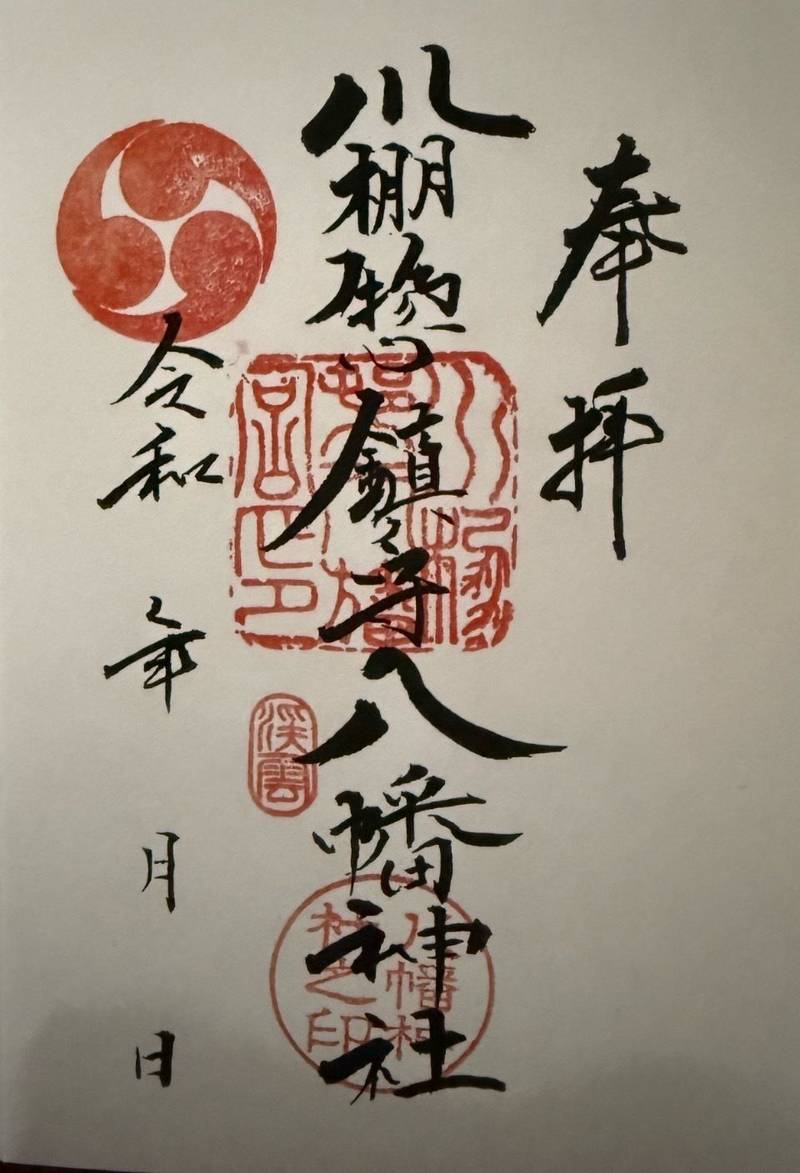 奉拝
川棚惣鎮守八幡神社
令和 年 月 日
渓雲
八幡神
社之印